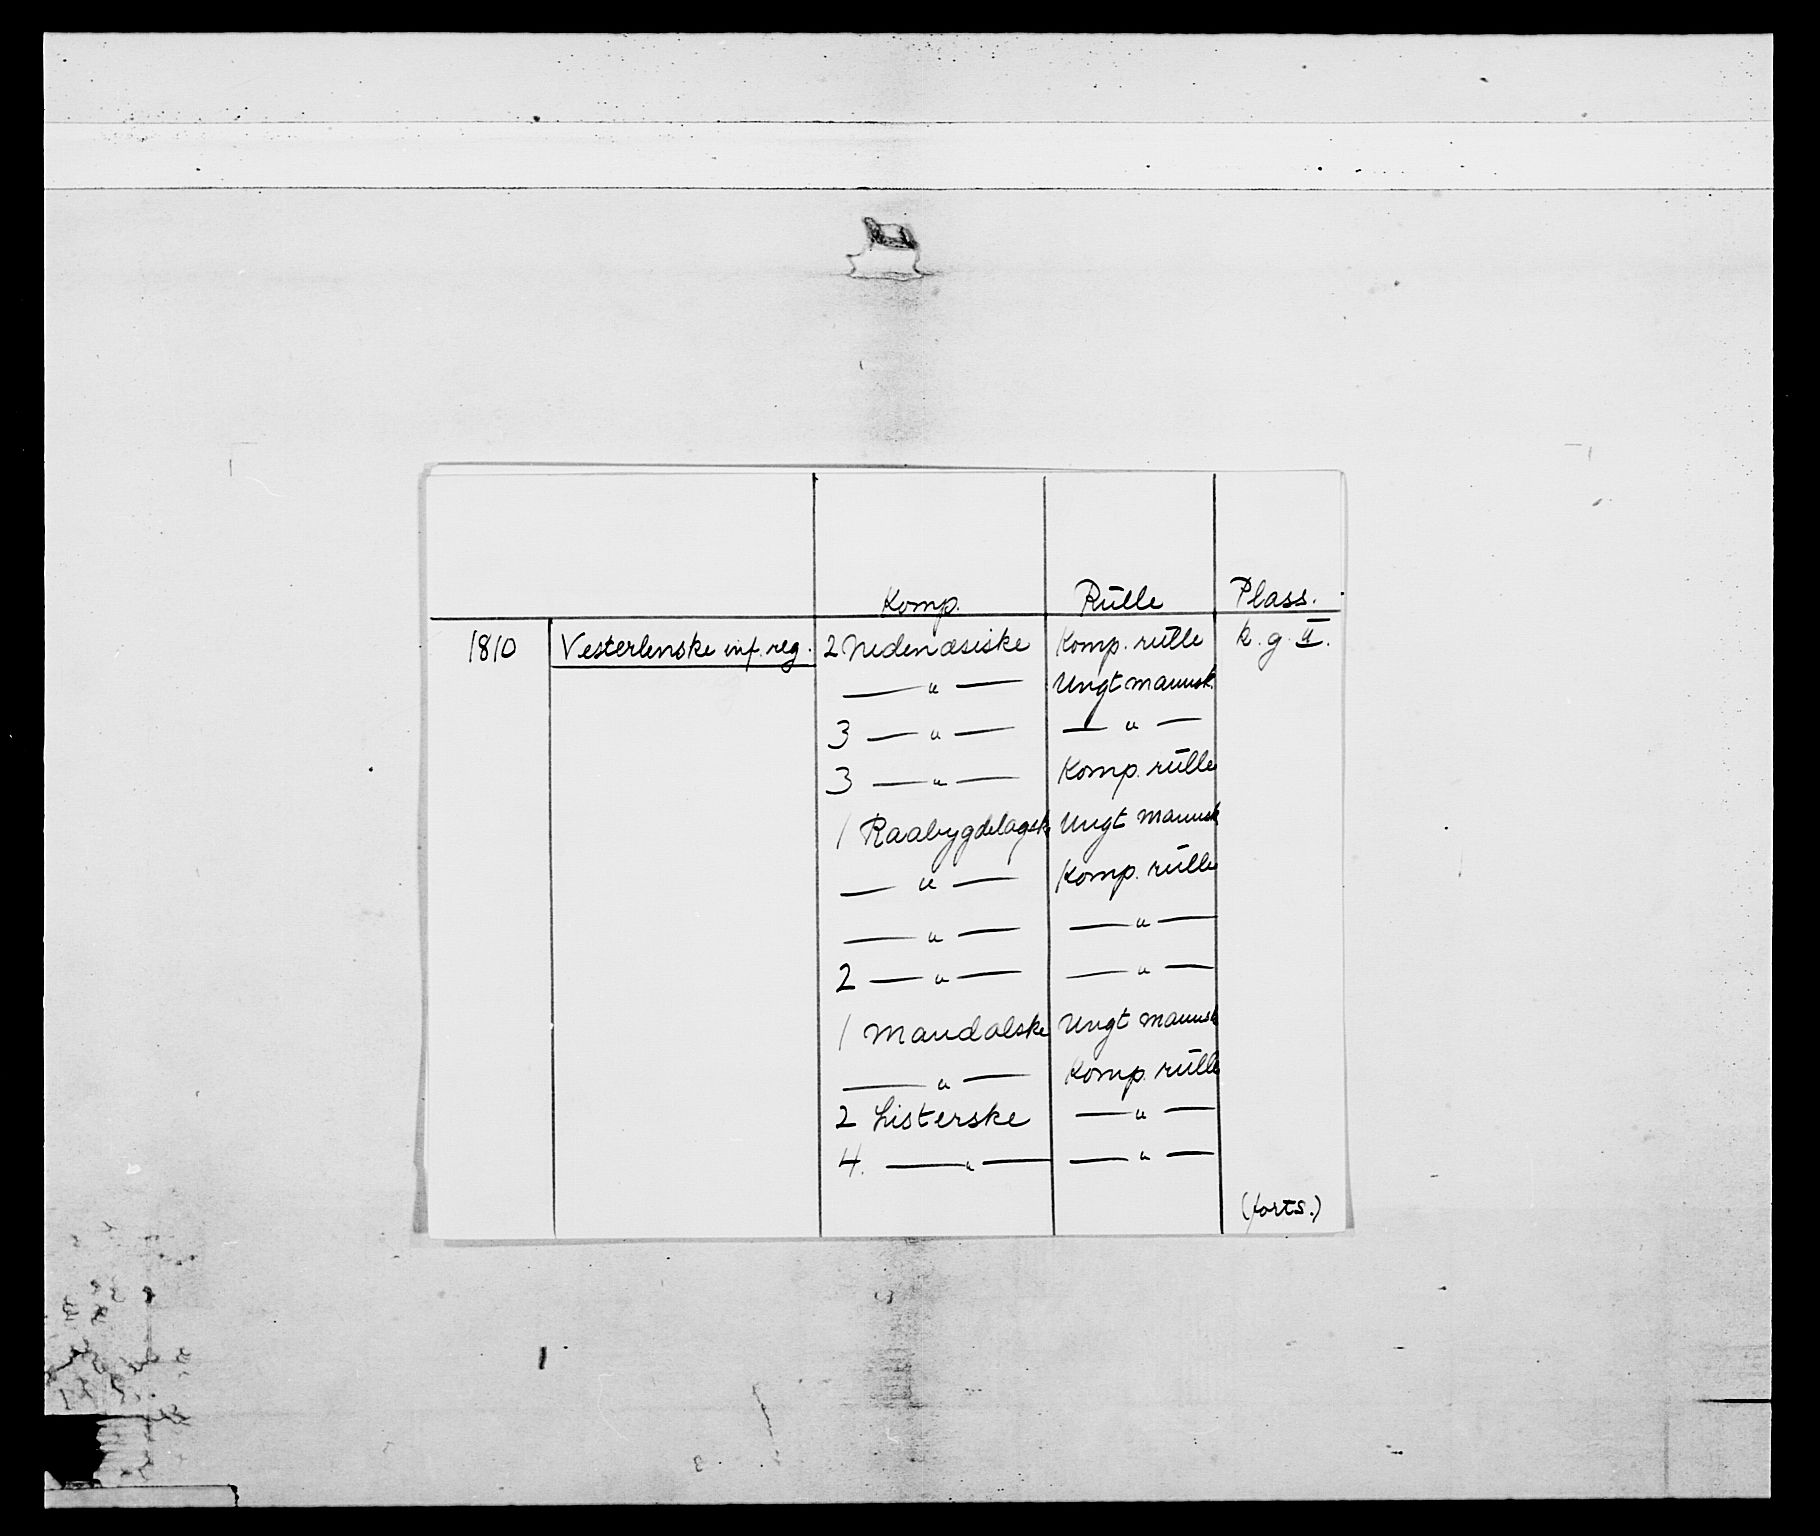 Komp. Rulle Plass.
1810 Vesterlenske inf. reg. 2 Nedenæsiske Komp. rulle k. g. II.
— " — Ungt mannsk.
3 — " — — " —
3 — " — Komp. rulle
1 Raabygdelagske Ungt mannsk
— " — Komp. rulle
— " — — " —
2 — " — — " —
1 Mandalske Ungt mannsk
— " — Komp. rulle
2 Listerske — " —
4. — " — — " —
(forts.)